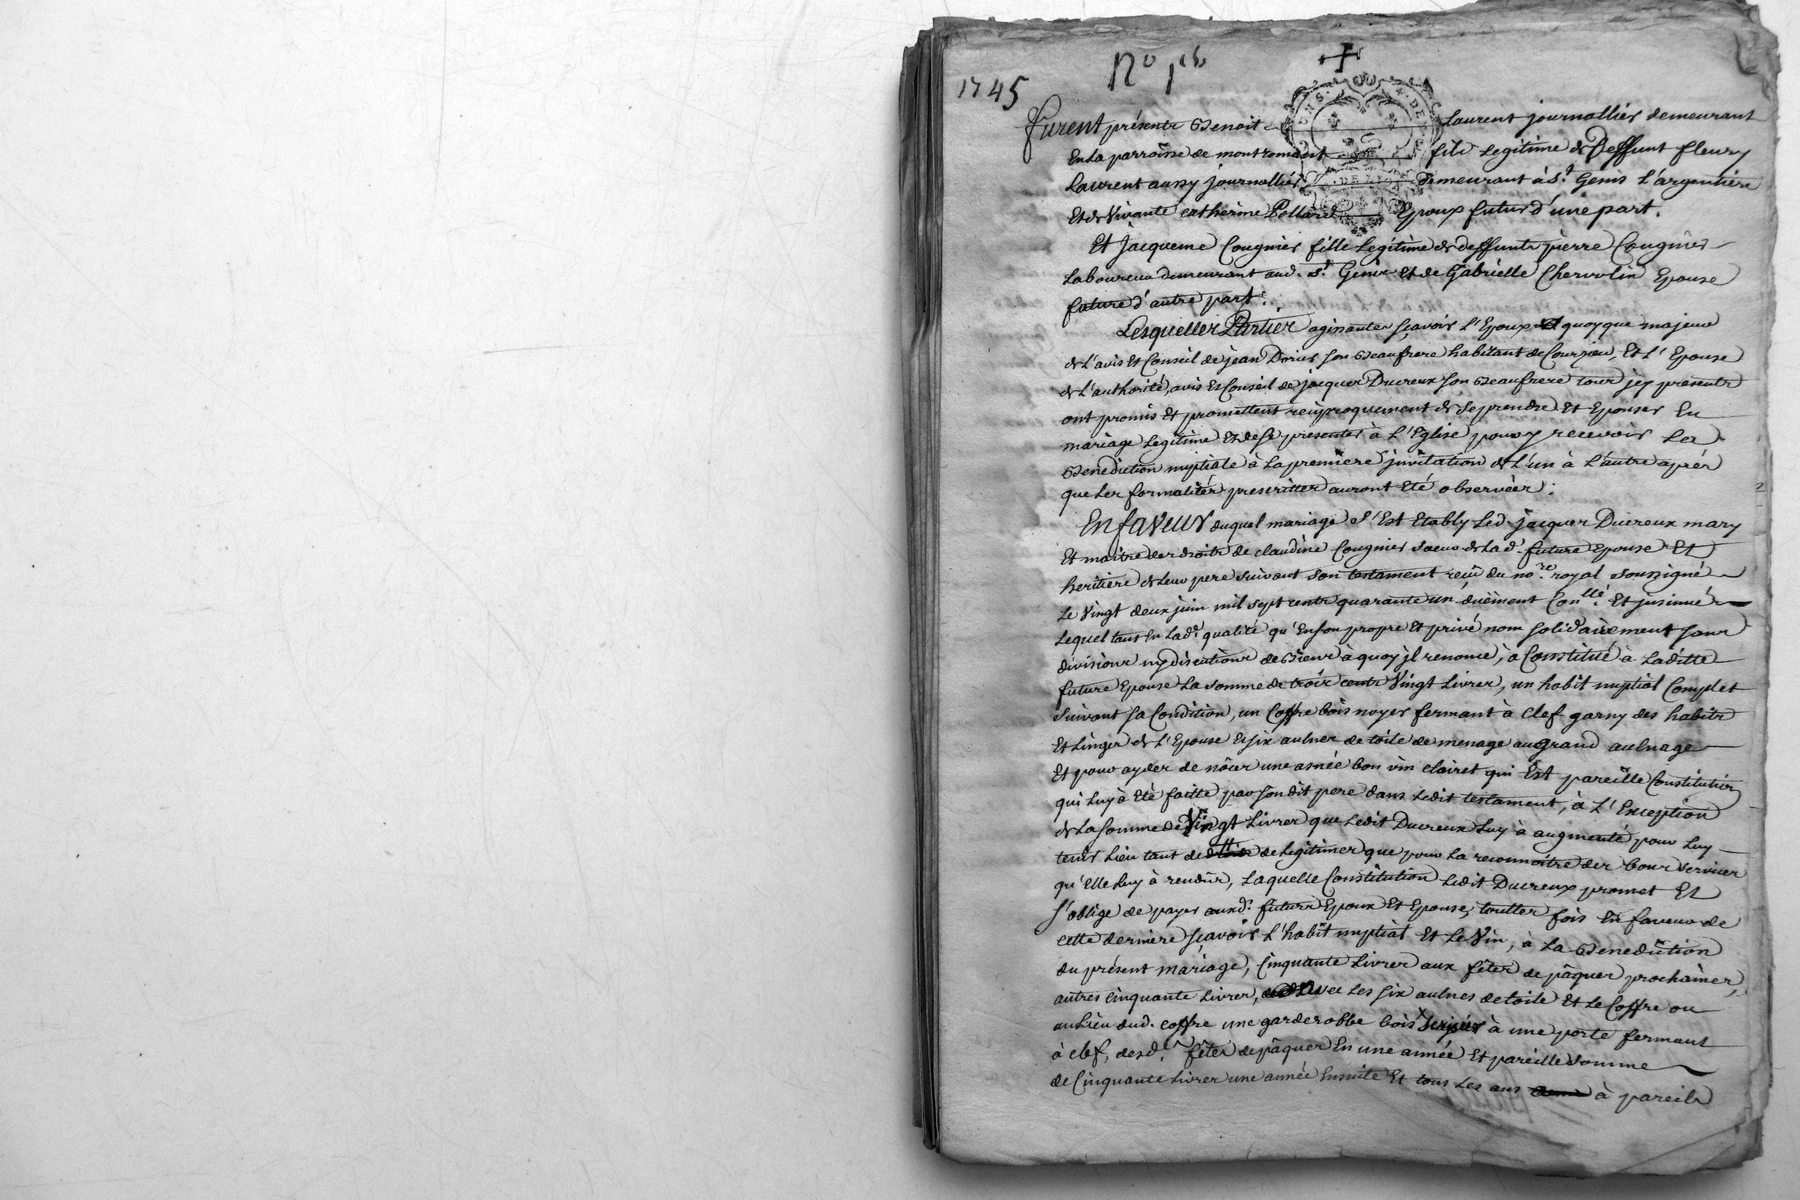 1745
+
Furent présents Benoit Laurent journallier demeurant
En la parroisse de montromant fils Legitime de Deffunt fleury
Laurent aussy journallier demeurant à St. Genis L'argentiere
Et de Vivante Catherine Pollard Epoux futur d'une part.
Et jacqueme Cougnier fille Legitime de deffunt pierre Cougnier
Laboureur demeurant aud. St. Genis Et de Gabrielle Chervolin Epouse
future d'autre part.
Lesquelles Parties agissantes sçavoir L'Epoux quoyque majeur
de L'avis Et Conseil de jean Dorier son Beaufrere habitant de Courzieu, Et L'Epouse
de L'authorité, avis Et Conseil de jacques Ducreux son Beaufrere tous jcy presents
ont promis Et promettent reciproquement de se prendre Et Epouser En
mariage Legitime Et de se presenter à L'Eglise pour y recevoir La
Benediction nuptiale à La premiere jnvitation de L'un à L'autre aprés
que Les formalités prescrittes auront Eté observées.
En faveur duquel mariage s'Est Etably Led. jacques Ducreux mary
Et maitre des droits de claudine Cougnier soeur de La d. future Epouse Et
heritiere de Leur pere suivant son testament reçu du nore. royal soussigné
Le Vingt deux juin mil sept cents quarante un düement Conllé. Et jnsinué
Lequel tant En La de. qualité qu'En son propre Et privé nom solidairement sans
division ny discution de Biens à quoy jl renonce, a Constitué à Laditte
future Epouse La somme de trois cents Vingt Livres, un habit nuptial Complet
suivant sa Condition, un Coffre bois noyer fermant à Clef garny des habits
Et Linges de L'Epouse Et six aulnes de toile de menage au grand aulnage
Et pour ayder de nôces une asnée bon vin clairet qui Est pareille Constitution
qui Luy à Eté faitte par son dit pere dans Ledit testament, à L'Exception
de La somme de Vingt Livres que Ledit Ducreux Luy à augmenté pour Luy
tenir Lieu tant de de Legitimes que pour La reconnoitre des bons services
qu'Elle Luy à rendus, Laquelle Constitution Ledit Ducreux promet Et
s'oblige de payer auxd. futurs Epoux Et Epouse, touttes fois En faveur de
cette derniere sçavoir L'habit nuptial Et Le Vin, à La Benediction
du présent mariage, Cinquante Livres aux fêtes de pâques prochaines,
autres Cinquante Livres, avec Les six aulnes de toile Et Le Coffre ou
au Lieu dud. coffre une garderobbe bois à une porte fermant
à clef, desd. fêtes de pâques En une année Et pareille somme
de Cinquante Livres une année Ensuite Et tous Les ans à pareils